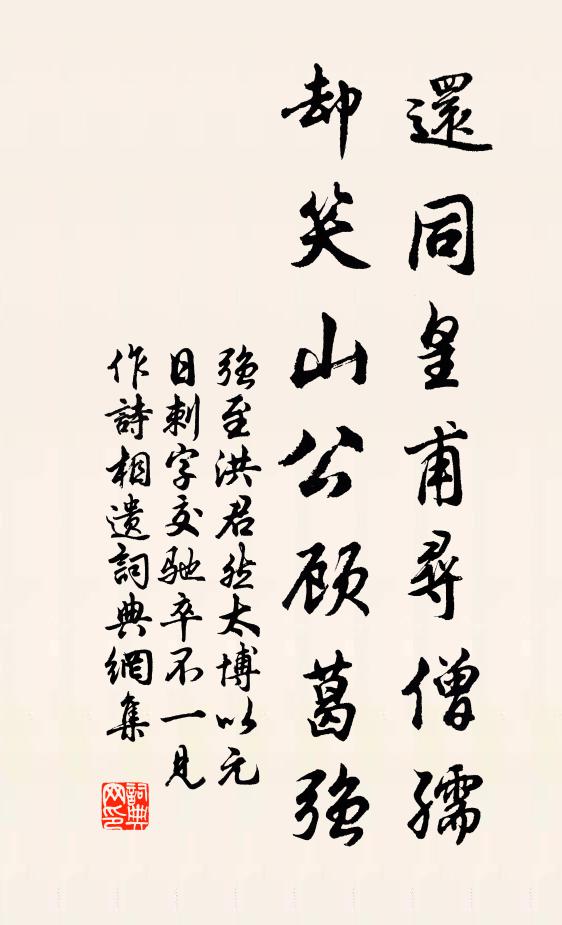 還同皇甫尋僧孺
却笑山公顧葛强
强至洪君然太博以元
日刺字交馳卒不一見
作詩相遺詞典網集
詞典
网印